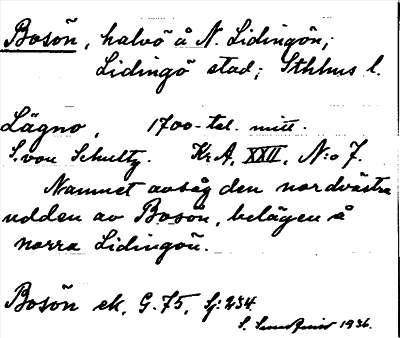 Bosön, halvö å N. Lidingön;
Lidingö stad; Sthlms l.
Lägno, 1700-tal. mitt.
S. von Schultz. Kr.A, XXII, N:o 7.
Namnet avsåg den nordvästra
udden av Bosön, belägen å
norra Lidingön.
Bosön ek. G. 75, Sj: 234.
S. 1936.